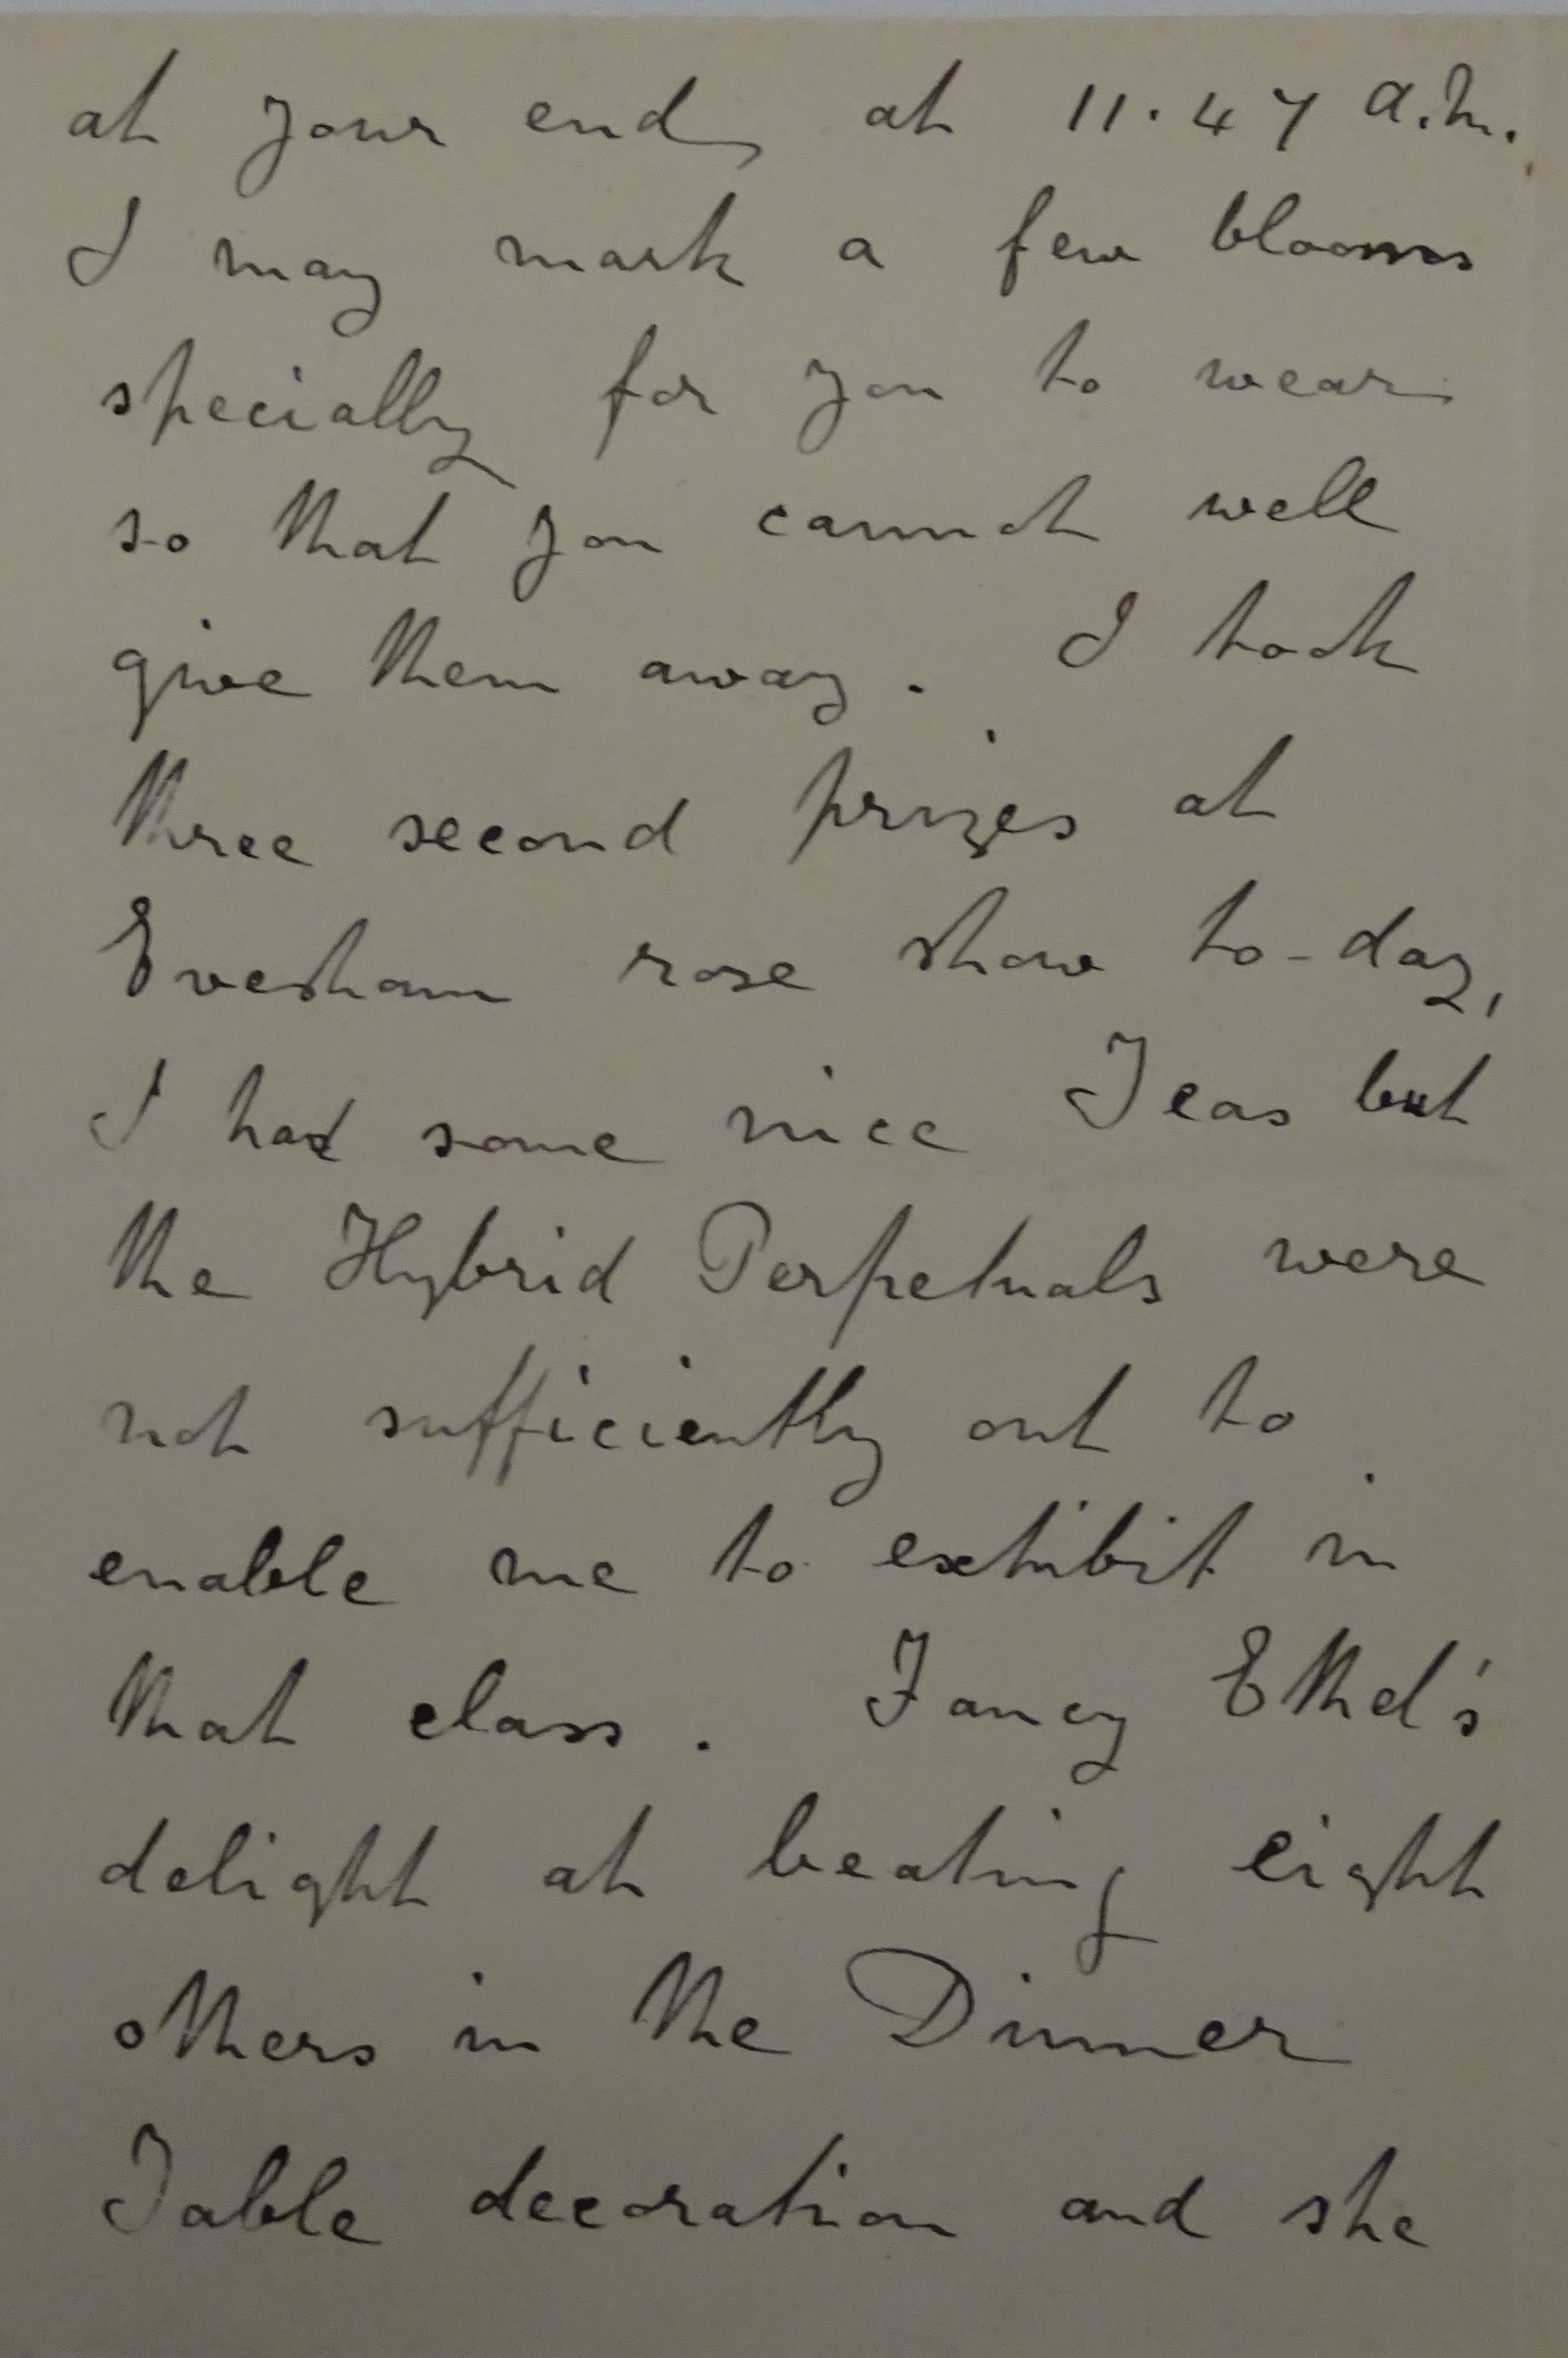 at your end, at 11.47 a.m.
I may mark a few blooms
specially for you to wear
so that you cannot well
give them away. I took
three second prizes at
Evesham rose show to-day,
I had some nice Teas but
the Hybrid Perpetuals were
not sufficiently out to
enable me to exhibit in
that class. Fancy Ethel's
delight at beating eight
others in the Dinner
Table decoration and she